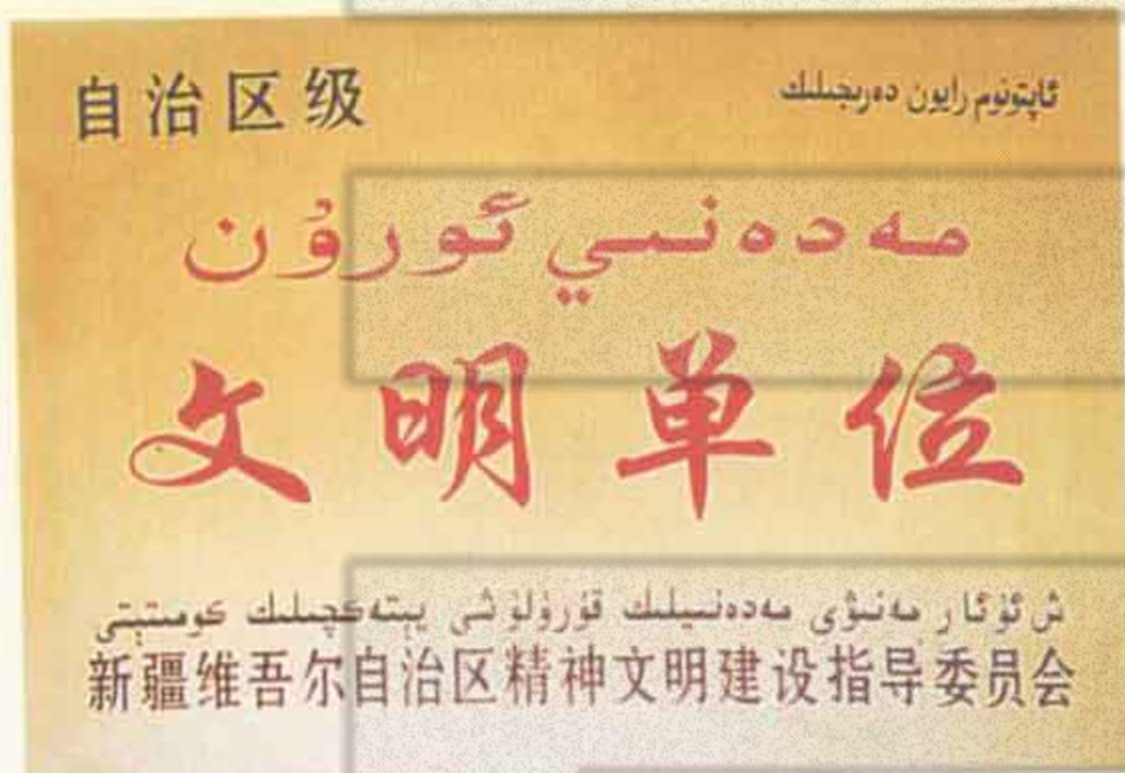 自治区级
ئاپتونوم رايون دەرىجىلىك
مەدەنىي ئورۇن
文明单位
ش ئۇ ئا ر مەنىۋى مەدەنىيلىك قۇرۇلۇشى يېتەكچىلىك كومىتېتى
新疆维吾尔自治区精神文明建设指导委员会